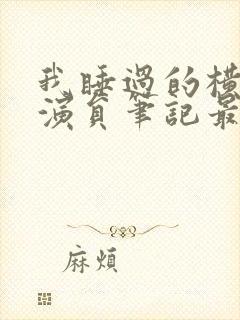 我睡過的橫
演員筆記最
麻煩